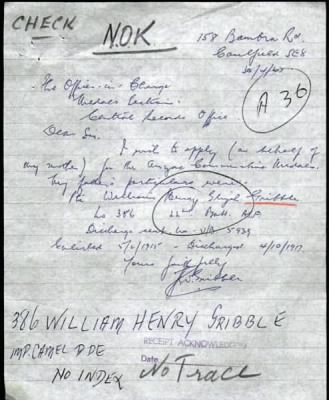 CHECK
N.O.K
158 Bambra Rd.
Caulfield SE8
A 36
The Officer-in-Charge
Medals Section.
Central Records Office
Dear Sir.
I wish to apply (on behalf of
my mother) for the Anzac Commemorative Medal.
My father's particulars were
Pte William Henry Gribble
No 386 Batt. AIF
Discharge cert. no
Enlisted 5/2/1915 - Discharged 4/10/1917
Yours faithfully
Gribble
386 WILLIAM HENRY GRIBBLE
IMP. CAMEL B.DE
RECEIPT ACKNOWLEDGED
NO INDEX
Date
No Trace